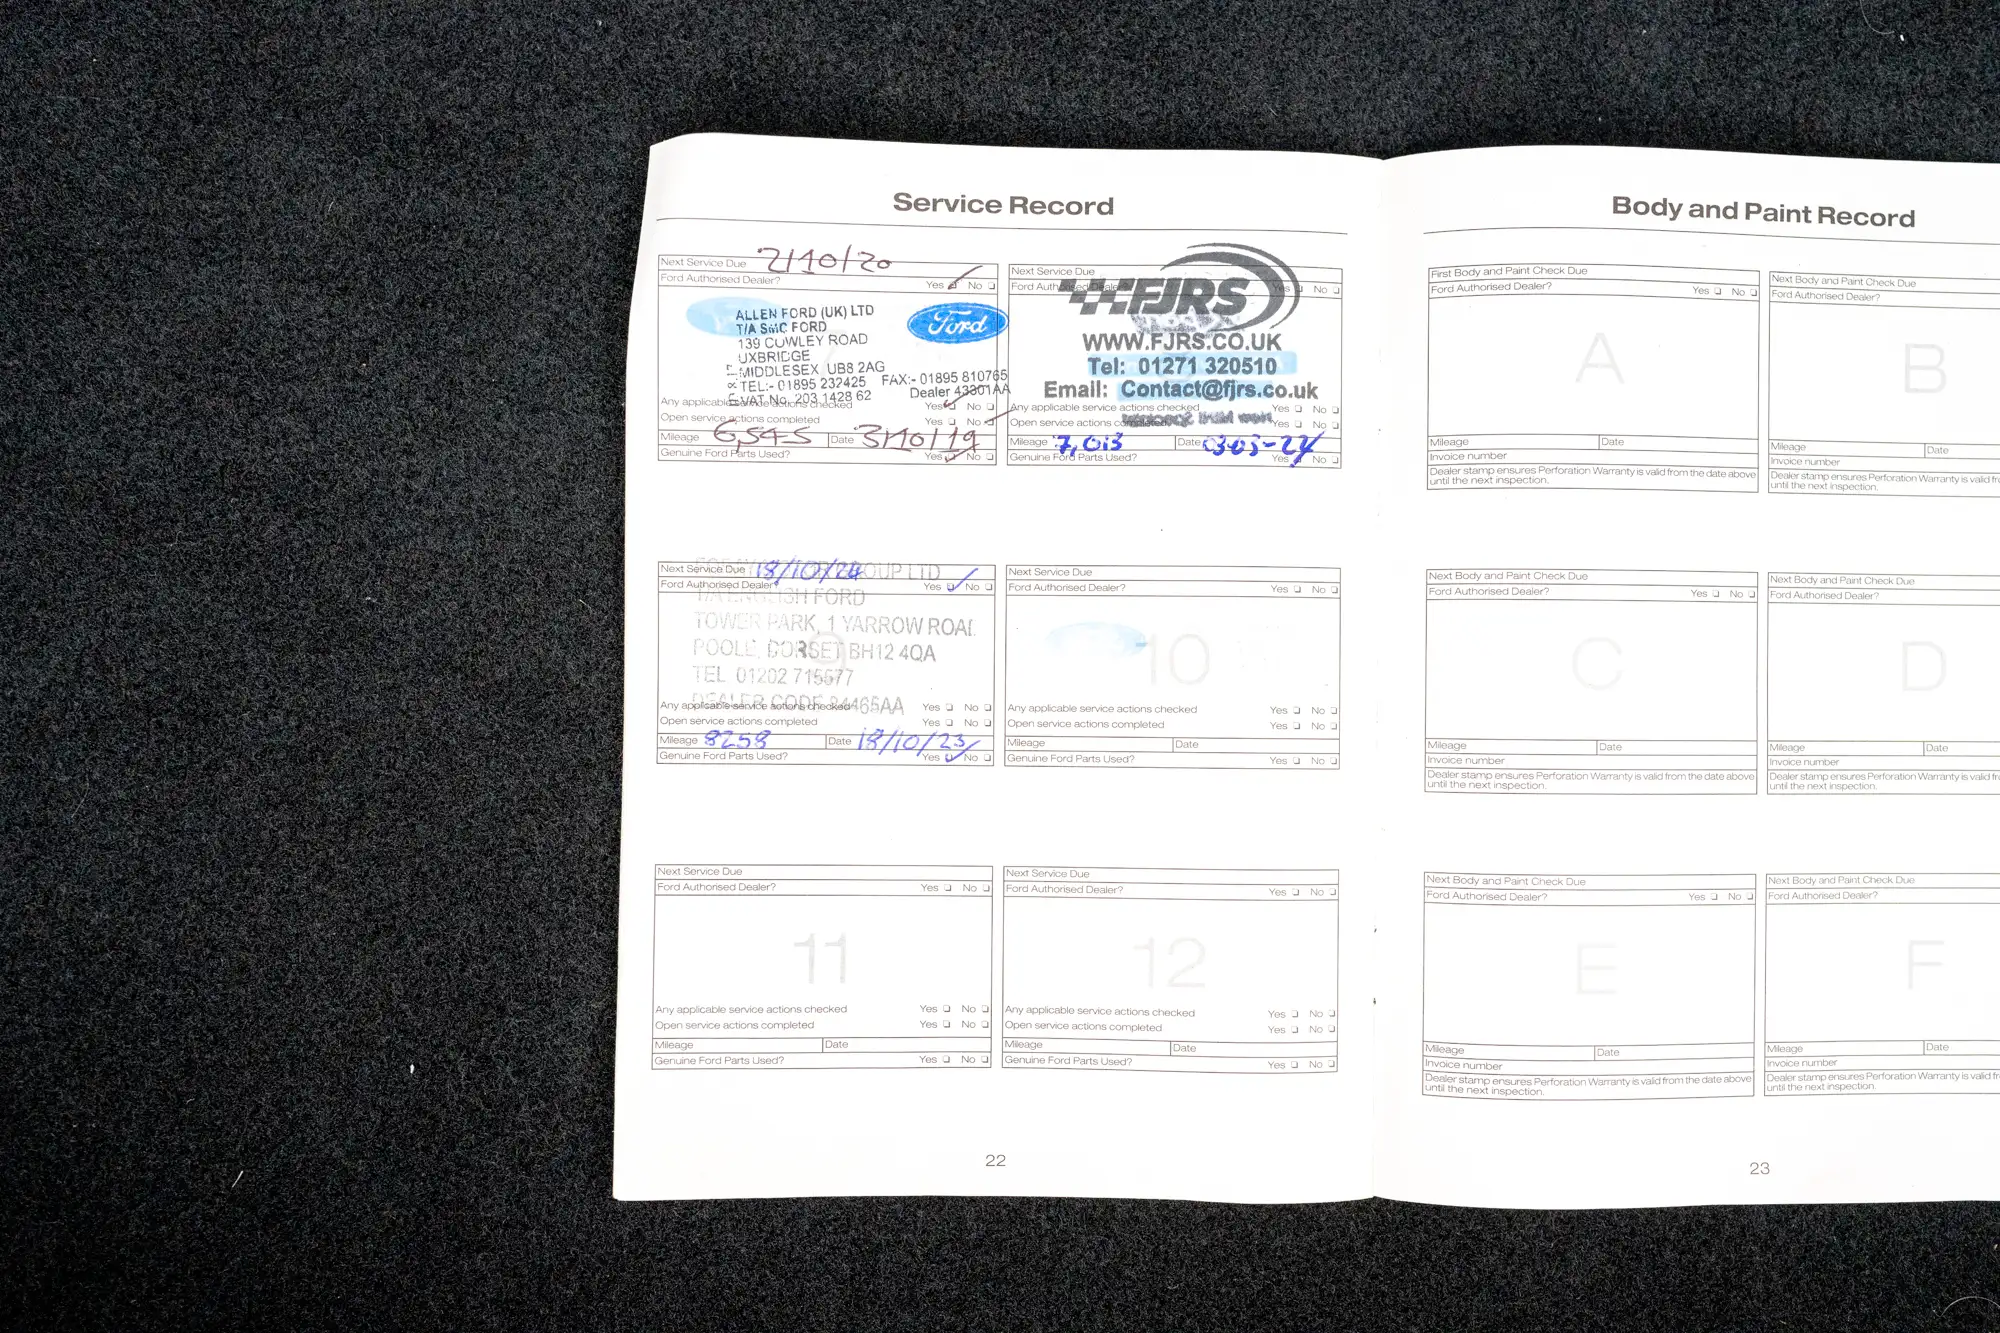 Service Record
Next Service Due 2/10/20
Ford Authorised Dealer? Yes No
ALLEN FORD (UK) LTD
T/A SMC FORD
Ford
139 COWLEY ROAD
UXBRIDGE
MIDDLESEX UB8 2AG
TEL:- 01895 232425 FAX:- 01895 810765
VAT No. 203 1428 62 Dealer 43301AA
Any applicable service actions checked Yes No
Open service actions completed Yes No
Mileage 6,545 Date 3/10/19
Genuine Ford Parts Used? Yes No
Next Service Due
Ford Authorised Dealer? Yes No
FJRS
WWW.FJRS.CO.UK
Tel: 01271 320510
Email: Contact@fjrs.co.uk
Any applicable service actions checked Yes No
Open service actions completed Yes No
Mileage 7,013 Date
Genuine Ford Parts Used? Yes No
Next Service Due 18/10/24
GROUP LTD
Ford Authorised Dealer? Yes No
FORD
TOWER PARK, 1 YARROW ROAD
9
POOLE, DORSET BH12 4QA
TEL 01202 715577
DEALER CODE
Any applicable service actions checked Yes No
Open service actions completed Yes No
Mileage 8258 Date 18/10/23
Genuine Ford Parts Used? Yes No
Next Service Due
Ford Authorised Dealer? Yes No
10
Any applicable service actions checked Yes No
Open service actions completed Yes No
Mileage Date
Genuine Ford Parts Used? Yes No
Next Service Due
Ford Authorised Dealer? Yes No
11
Any applicable service actions checked Yes No
Open service actions completed Yes No
Mileage Date
Genuine Ford Parts Used? Yes No
Next Service Due
Ford Authorised Dealer? Yes No
12
Any applicable service actions checked Yes No
Open service actions completed Yes No
Mileage Date
Genuine Ford Parts Used? Yes No
22
Body and Paint Record
First Body and Paint Check Due
Ford Authorised Dealer? Yes No
A
Mileage Date
Invoice number
Dealer stamp ensures Perforation Warranty is valid from the date above
until the next inspection.
Next Body and Paint Check Due
Ford Authorised Dealer?
B
Mileage Date
Invoice number
Dealer stamp ensures Perforation Warranty is valid
until the next inspection.
Next Body and Paint Check Due
Ford Authorised Dealer? Yes No
C
Mileage Date
Invoice number
Dealer stamp ensures Perforation Warranty is valid from the date above
until the next inspection.
Next Body and Paint Check Due
Ford Authorised Dealer?
D
Mileage Date
Invoice number
Dealer stamp ensures Perforation Warranty is valid
until the next inspection.
Next Body and Paint Check Due
Ford Authorised Dealer? Yes No
E
Mileage Date
Invoice number
Dealer stamp ensures Perforation Warranty is valid from the date above
until the next inspection.
Next Body and Paint Check Due
Ford Authorised Dealer?
F
Mileage Date
Invoice number
Dealer stamp ensures Perforation Warranty is valid
until the next inspection.
23